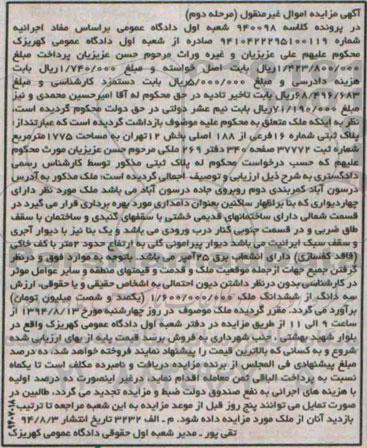 آگهی مزایده اموال غیرمنقول (مرحله دوم)
در پرونده کلاسه ۹۴۰۰۹۸ شعبه اول دادگاه عمومی براساس مفاد اجرائیه
شماره ۹۴۱۰۴۲۲۲۹۵۱۰۰۱۱۹ صادره از شعبه اول دادگاه عمومی کهریزک
محکوم علیهم علی عزیزیان و غیره وراث مرحوم حسن عزیزیان به پرداخت مبلغ
۱/۴۲۳/۸۰۰/۰۰۰ریال بابت اصل خواسته و مبلغ ۱/۷۴۰/۰۰۰ ریال بابت
هزینه دادرسی و مبلغ ۵/۰۰۰/۰۰۰ریال بابت دستمزد کارشناسی و مبلغ
۶۸/۴۹۶/۶۸۳ریال بابت تاخیر تادیه در حق محکوم له آقا امیرحسین محمدی و نیز
مبلغ ۷۱/۱۹۰/۰۰۰ریال بابت نیم عشر دولتی در حق دولت محکوم گردیده است،
نظر به اینکه ملک متعلق به محکوم علیه موصوف بازداشت گردیده است که عبارتنداز:
پلاک ثبتی شماره ۱۶فرعی از ۱۸۸ اصلی بخش ۱۲تهران به مساحت ۱۷۷۵مترمربع
شماره ثبت ۳۷۷۷۲ صفحه ۳۴۰ دفتر ۲۶۹ ملکی مرحوم حسن عزیزیان مورث محکوم
علیهم که حسب درخواست محکوم له پلاک ثبتی مذکور توسط کارشناس رسمی
دادگستری به شرح ذیل ارزیابی و توصیف اجمالی گردیده است: ملک مذکور به آدرس
درسون آباد کمربندی دوم روبروی جاده درسون آباد می باشد ملک مورد نظر دارای
چهاردیواری که بنا براظهار ساکنین بعنوان دامداری مورد بهره برداری قرار می گیرد در
قسمت شمالی دارای ساختمانهای قدیمی خشتی با سقفهای گنبدی و ساختمان با سقف
طاق ضربی و در قسمت جنوبی کنار درب ورودی می باشد و یک بنا نیز با دیوار آجری
و سقف سبک ایرانیت می باشد دیوار پیرامونی کلی به ارتفاع حدود ۲متر با کف خاکی
(فاقد کفسازی) دارای انشعاب برق ۲۵آمپر می باشد. باتوجه به موارد فوق و درنظر
گرفتن جمیع جهات ازجمله موقعیت ملک و قدمت و قیمتهای منطقه و سایر عوامل موثر
در کارشناسی بدون درنظر داشتن دیون احتمالی به اشخاص حقیقی و یا حقوقی، ارزش
سه دانگ از ششدانگ ملک ۱/۶۰۰/۰۰۰/۰۰۰ (یکصد و شصت میلیون تومان)
برآورد می گردد. مقرر گردیده ملک موصوف در روز چهارشنبه مورخ ۱۳۹۴/۸/۱۳ از
ساعت ۹ الی ۱۱ از طریق مزایده در دفتر شعبه اول دادگاه عمومی کهریزک واقع در
بلوار شهید بهشتی - جنب شهرداری به فروش برسد قیمت پایه از بهای ارزیابی شده
شروع و به کسانی که بالاترین قیمت را پیشنهاد نمایند فروخته خواهد شد، ده درصد
مبلغ پیشنهادی فی المجلس از برنده مزایده دریافت و نامبرده مکلف است تا یکماه
نسبت به پرداخت الباقی ثمن معامله اقدام نماید درغیر اینصورت ده درصد اولیه
با هزینه های اجرایی به نفع صندوق دولت ضبط و مزایده تجدید می گردد، طالبین در
صورت تمایل می توانند پنج روز قبل از موعد مزایده به این شعبه مراجعه تا ترتیب
بازدید آنان از ملک مورد مزایده داده شود. م - الف ۳۲۳۲ تاریخ انتشار ۹۴/۸/۳
تقی پور - مدیر شعبه اول حقوقی دادگاه عمومی کهریزک